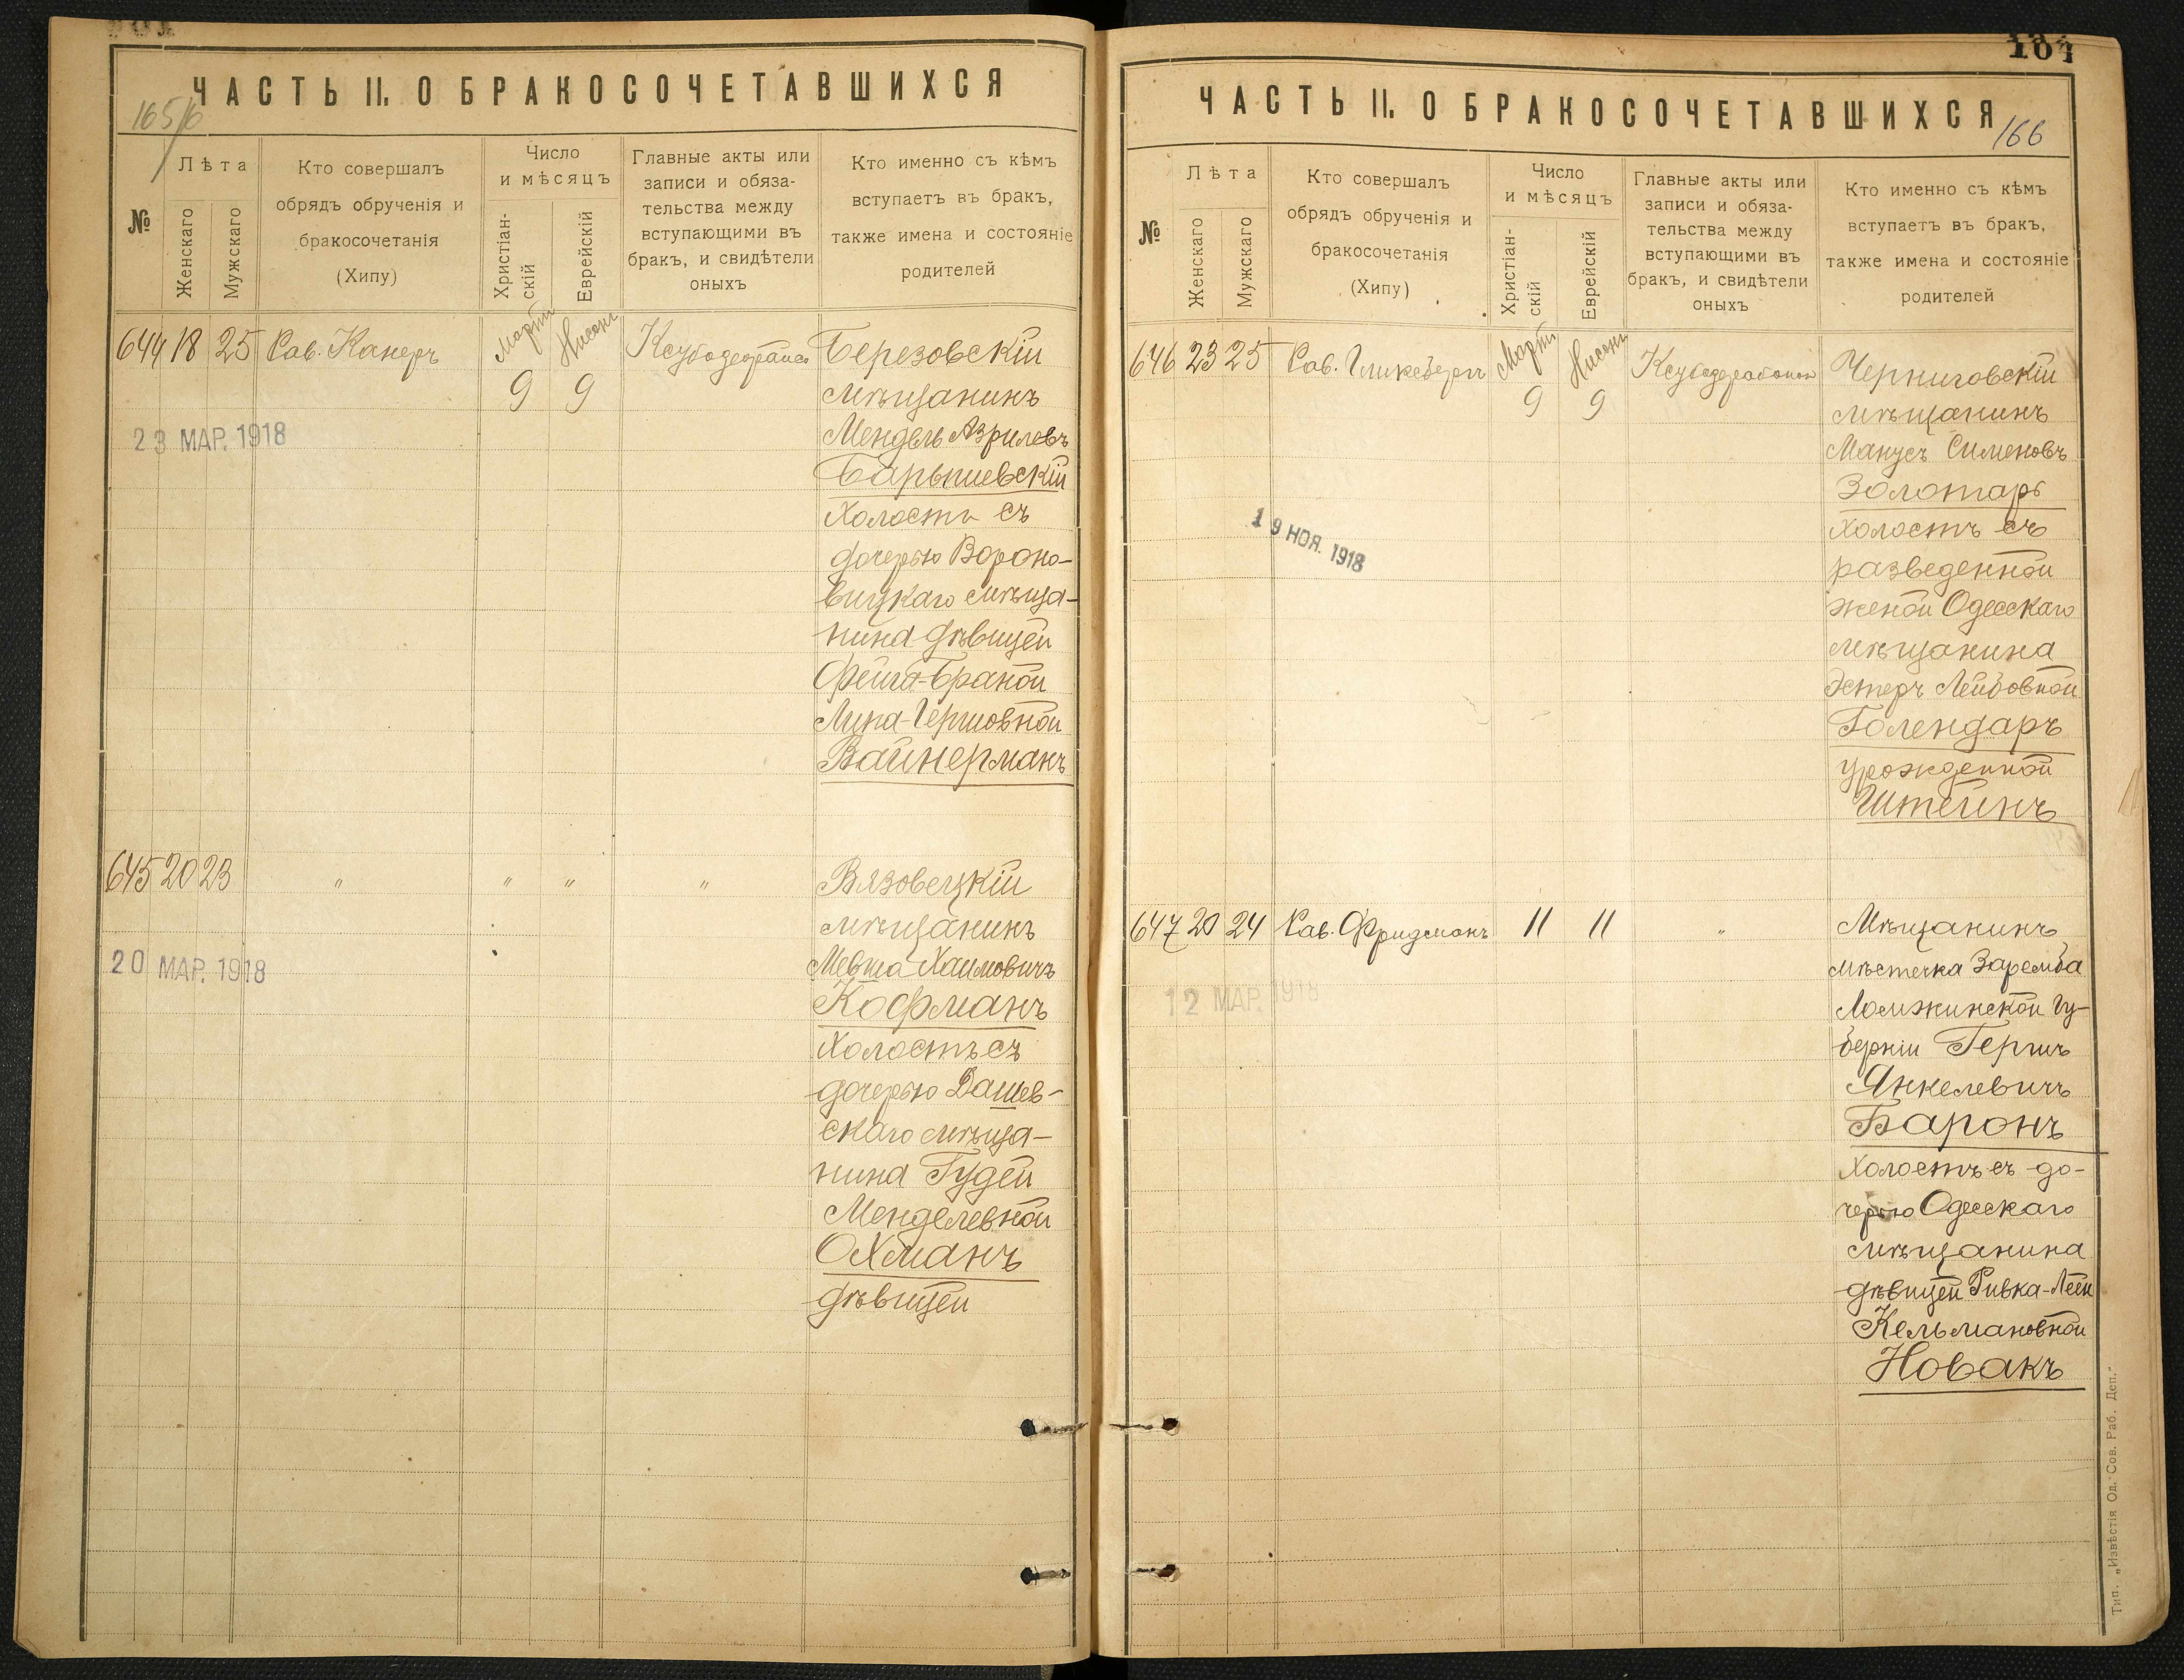 ЧАСТЬ II. О БРАКОСОЧЕТАВШИХСЯ
165/6
№
Лѣта
Женскаго
Мужскаго
Кто совершалъ
обрядъ обрученія и
бракосочетанія
(Хипу)
Число
и мѣсяцъ
Христіан-
скій
Еврейскій
Главные акты или
записи и обяза-
тельства между
вступающими въ
бракъ, и свидѣтели
оныхъ
Кто именно съ кѣмъ
вступаетъ въ бракъ,
также имена и состояніе
родителей
644 18 25 Рав. Канеръ
Мартъ 9
Нисонъ 9
Березовскій
мѣщанинъ
Мендель Азрилевъ
Барышевскій
холостъ съ
дочерью Вороно-
вицкаго мѣща-
нина дѣвицей
Фейга-Браной
Лина-Гершовной
Вайнерманъ
23 МАР. 1918
645 20 23 " " " "
Вязовецкій
мѣщанинъ
Мевша Хаимовичъ
Кофманъ
холостъ съ
дочерью Дашев-
скаго мѣща-
нина Гудей
Менделевной
Охманъ
дѣвицей
20 МАР. 1918
104
ЧАСТЬ II. О БРАКОСОЧЕТАВШИХСЯ
166
№
Лѣта
Женскаго
Мужскаго
Кто совершалъ
обрядъ обрученія и
бракосочетанія
(Хипу)
Число
и мѣсяцъ
Христіан-
скій
Еврейскій
Главные акты или
записи и обяза-
тельства между
вступающими въ
бракъ, и свидѣтели
оныхъ
Кто именно съ кѣмъ
вступаетъ въ бракъ,
также имена и состояніе
родителей
646 23 25 Рав. Гликсбергъ
Мартъ 9
Нисонъ 9
Черниговскій
мѣщанинъ
Манусъ Сименовъ
Золотарь
холостъ съ
разведенной
женой Одесскаго
мѣщанина
Эстеръ Лейбовной
Голендаръ
урожденной
Штейнъ
19 НОЯ. 1918
647 20 24 Рав. Фридманъ 11 11 "
Мѣщанинъ
мѣстечка Заремба
Ломжинской Гу-
берніи Гершъ
Янкелевичъ
Баронъ
холостъ съ до-
черью Одесскаго
мѣщанина
дѣвицей Ривка-Леей
Кельмановной
Новакъ
12 МАР. 1918
Тип. „Извѣстія Од. Сов. Раб. Деп."